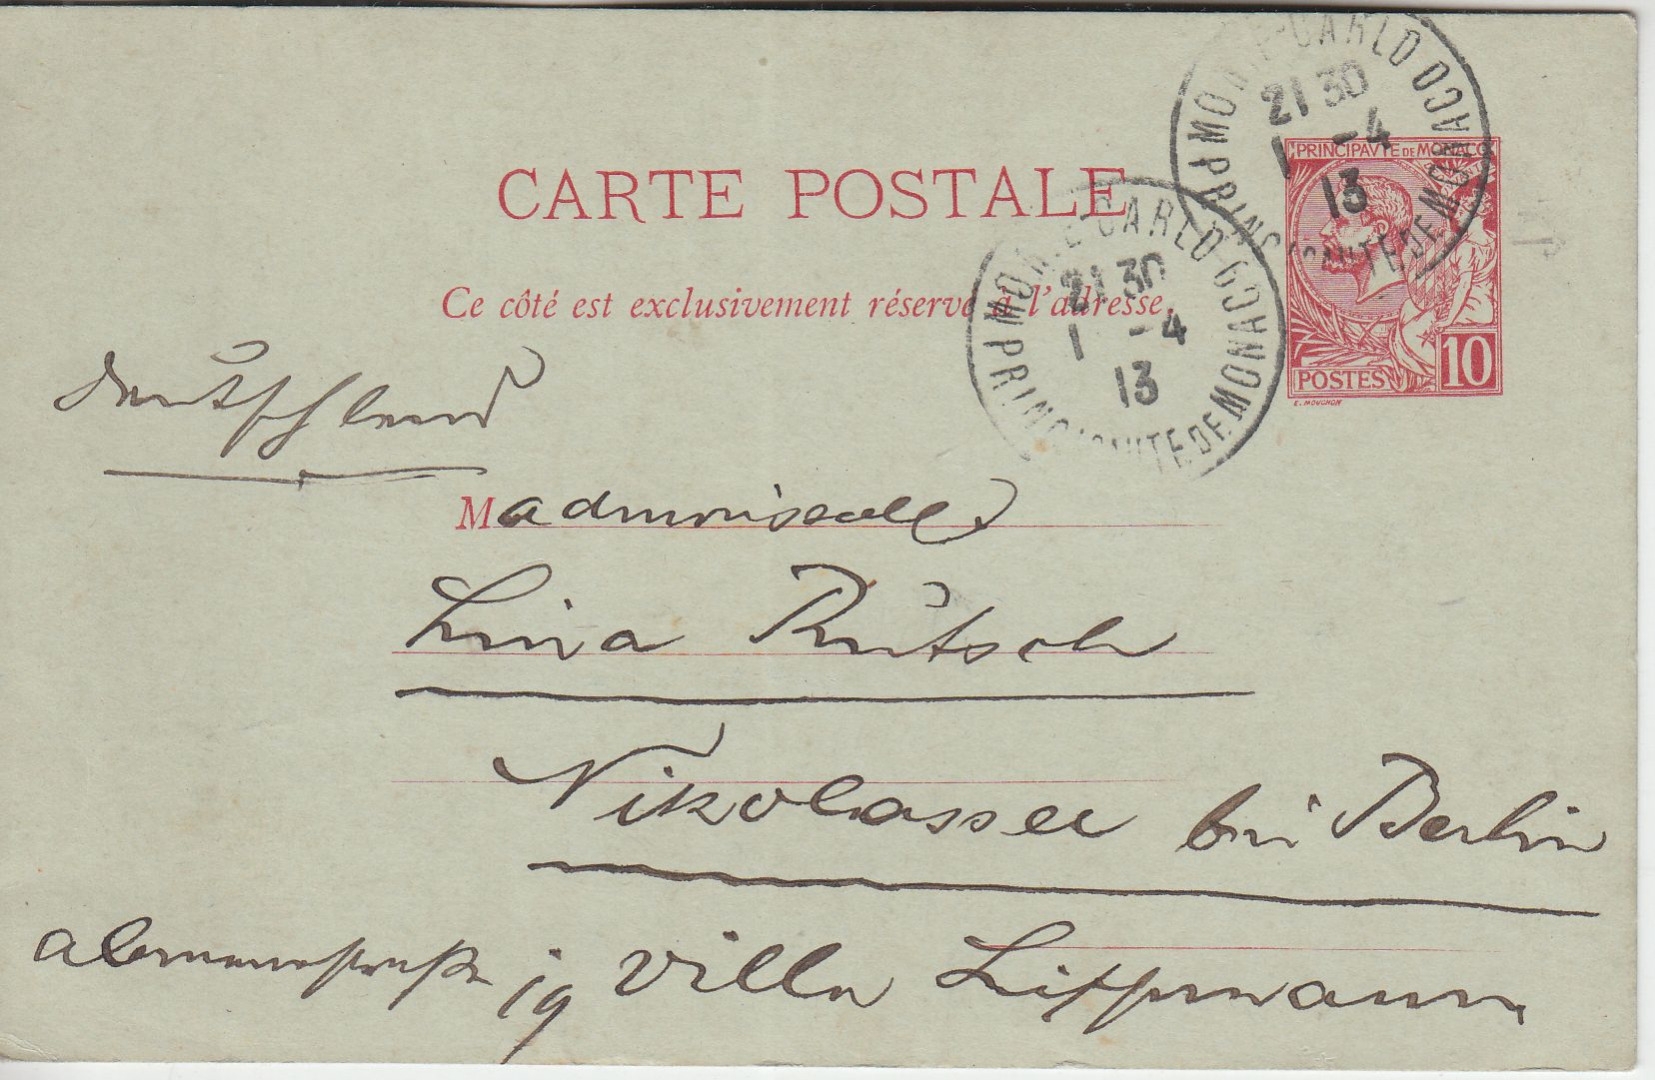 CARTE POSTALE
Ce côté est exclusivement réservé à l'adresse.
MONTE-CARLO MONACO PRINCIPAUTE DE
21 30
1 -4
13
MONTE-CARLO MONACO PRINCIPAUTE DE
21 30
1 -4
13
PRINCIPAVTE DE MONACO
POSTES 10
E. MOUCHON
Deutschland
Mademoiselle
Lina Rütsch
Nikolassee bei Berlin
Alemannenstraße 19 Villa Lippmann